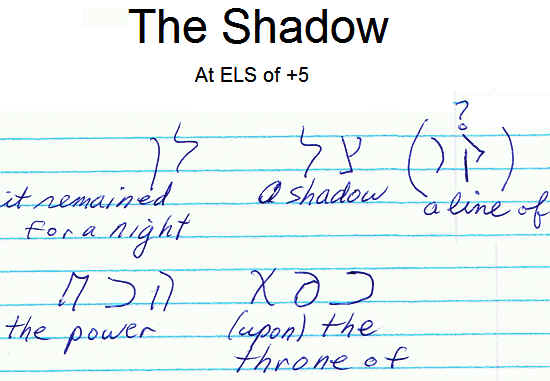 The Shadow
At ELS of +5
?
(קו) צל לן
it remained a shadow a line of
for a night
כסא הכח
the power (upon) the
throne of